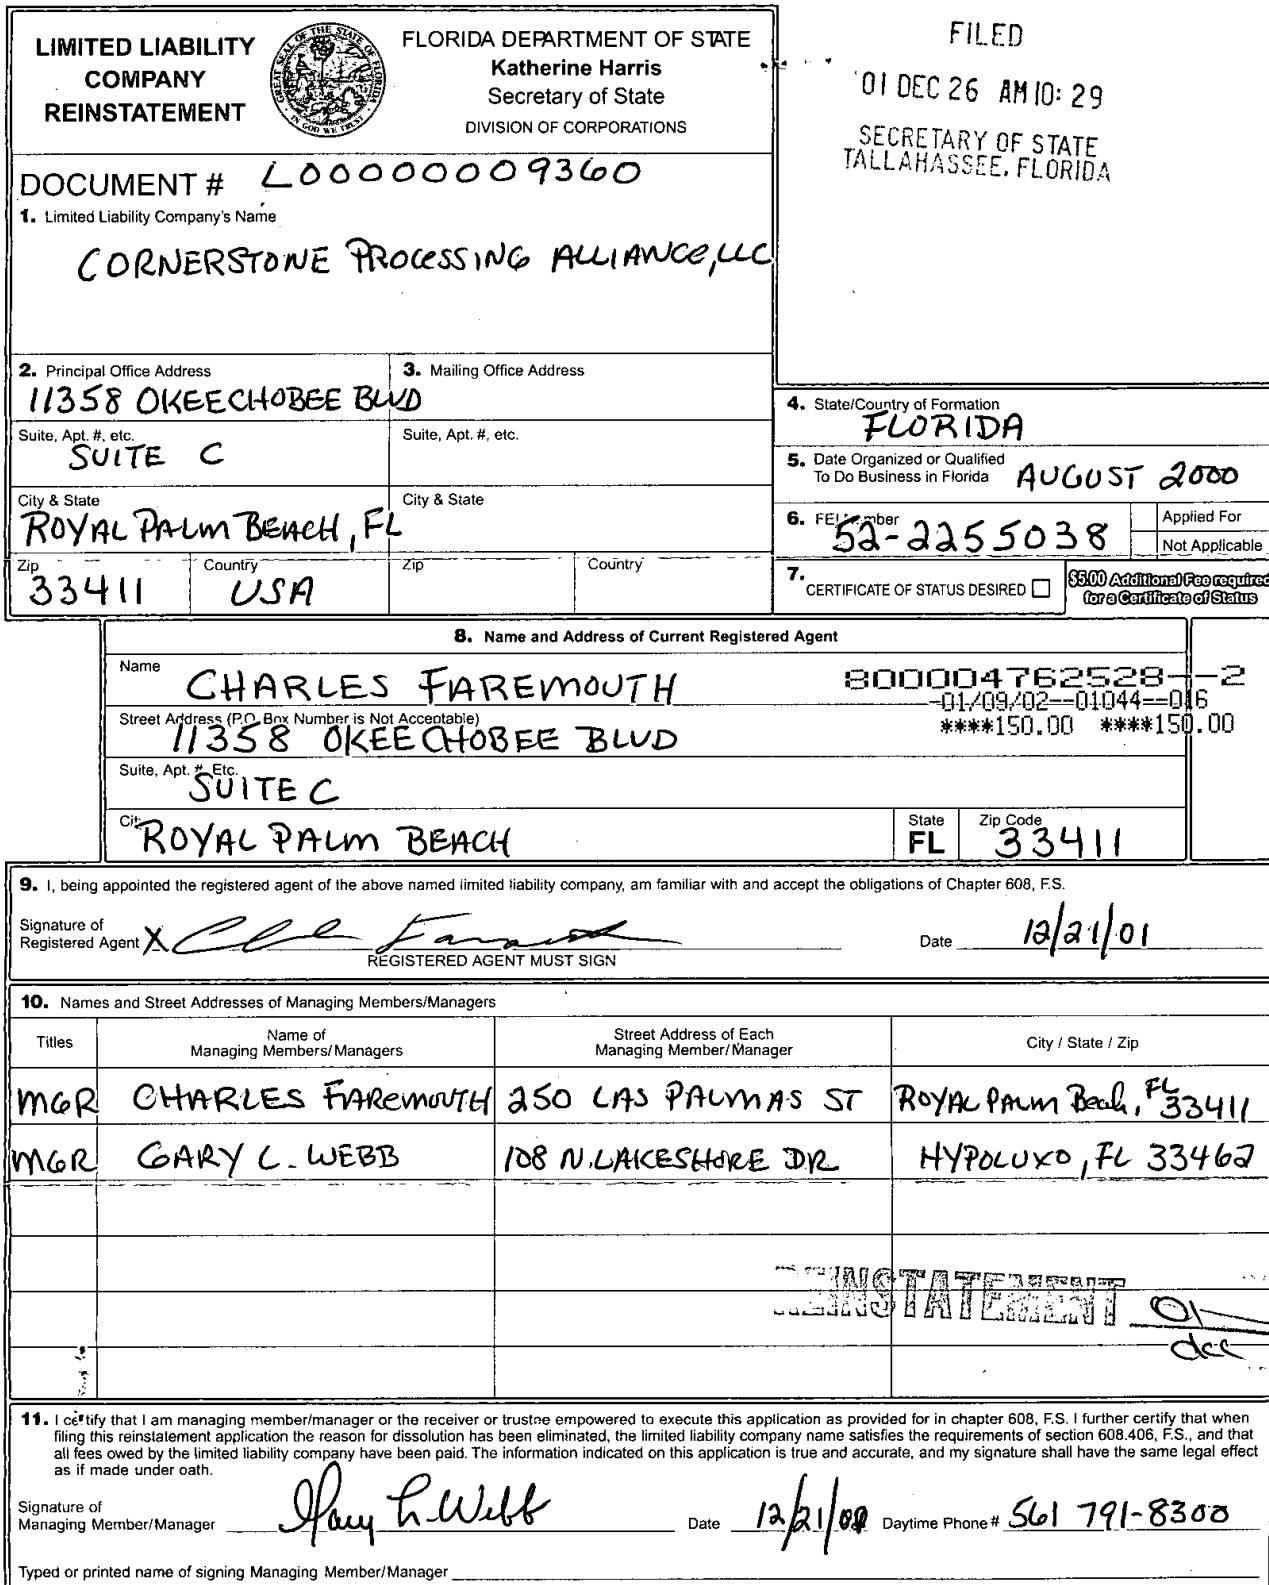 LIMITED LIABILITY
COMPANY
REINSTATEMENT
GREAT SEAL OF THE STATE OF FLORIDA
IN GOD WE TRUST
FLORIDA DEPARTMENT OF STATE
Katherine Harris
Secretary of State
DIVISION OF CORPORATIONS
FILED
01 DEC 26 AM 10: 29
SECRETARY OF STATE
TALLAHASSEE, FLORIDA
DOCUMENT # L00000009360
1. Limited Liability Company's Name
CORNERSTONE PROCESSING ALLIANCE, LLC
2. Principal Office Address
11358 OKEECHOBEE BLVD
3. Mailing Office Address
Suite, Apt. #, etc.
SUITE C
Suite, Apt. #, etc.
City & State
ROYAL PALM BEACH, FL
City & State
Zip
33411
Country
USA
Zip
Country
4. State/Country of Formation
FLORIDA
5. Date Organized or Qualified
To Do Business in Florida AUGUST 2000
6. FEI Number
52-2255038
Applied For
Not Applicable
7. CERTIFICATE OF STATUS DESIRED
$5.00 Additional Fee required
for a Certificate of Status
8. Name and Address of Current Registered Agent
Name
CHARLES FAREMOUTH
800004762528--2
-01/09/02--01044--016
****150.00 ****150.00
Street Address (P.O. Box Number is Not Acceptable)
11358 OKEECHOBEE BLVD
Suite, Apt. #, Etc.
SUITE C
City
ROYAL PALM BEACH
State
FL
Zip Code
33411
9. I, being appointed the registered agent of the above named limited liability company, am familiar with and accept the obligations of Chapter 608, F.S.
Signature of
Registered Agent X
REGISTERED AGENT MUST SIGN
Date 12/21/01
10. Names and Street Addresses of Managing Members/Managers
Titles
Name of
Managing Members/Managers
Street Address of Each
Managing Member/Manager
City / State / Zip
MGR CHARLES FAREMOUTH 250 LAS PALMAS ST ROYAL PALM Beach, FL 33411
MGR GARY L. WEBB 108 N. LAKESHORE DR HYPOLUXO, FL 33462
REINSTATEMENT 01
dcc
11. I certify that I am managing member/manager or the receiver or trustee empowered to execute this application as provided for in chapter 608, F.S. I further certify that when
filing this reinstatement application the reason for dissolution has been eliminated, the limited liability company name satisfies the requirements of section 608.406, F.S., and that
all fees owed by the limited liability company have been paid. The information indicated on this application is true and accurate, and my signature shall have the same legal effect
as if made under oath.
Signature of
Managing Member/Manager Gary L. Webb
Date 12/21/01 Daytime Phone # 561 791-8300
Typed or printed name of signing Managing Member/Manager